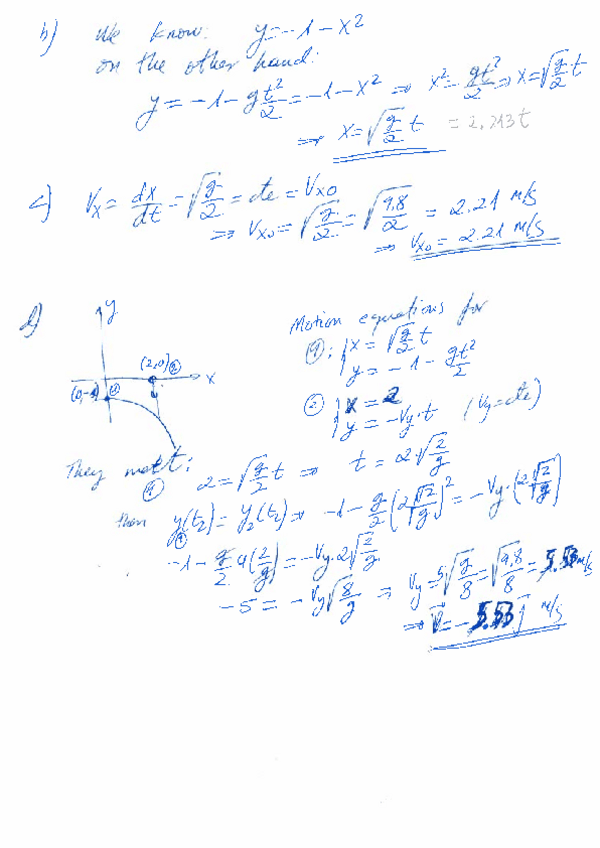 b) We know: y=-1-x²
on the other hand:
y = -1 - gt²/2 = -1 - x² ⇒ x² = gt²/2 ⇒ x = √(g/2) t
⇒ x = √(g/2) t = 2,213t
c) Vx = dx/dt = √(g/2) = cte = Vx0
⇒ Vx0 = √(g/2) = √(9.8/2) = 2.21 m/s
⇒ Vx0 = 2.21 m/s
d) y
x
(2,0) ②
(0,-1) ①
Motion equations for
①: { x = √(g/2) t
y = -1 - gt²/2
② { x = 2
y = -Vy·t (Vy=cte)
They meet:
① 2 = √(g/2) t ⇒ t = 2√(2/g)
then y₁(t₂) = y₂(t₂) ⇒ -1 - g/2 (2√2/√g)² = -Vy·(2√2/√g)
-1 - g/2 4(2/g) = -Vy·2√(2/g)
-5 = -Vy√(8/g) ⇒ Vy = 5√(g/8) = √(9.8/8) = 5.53 m/s
⇒ V⃗ = -5.53 j⃗ m/s